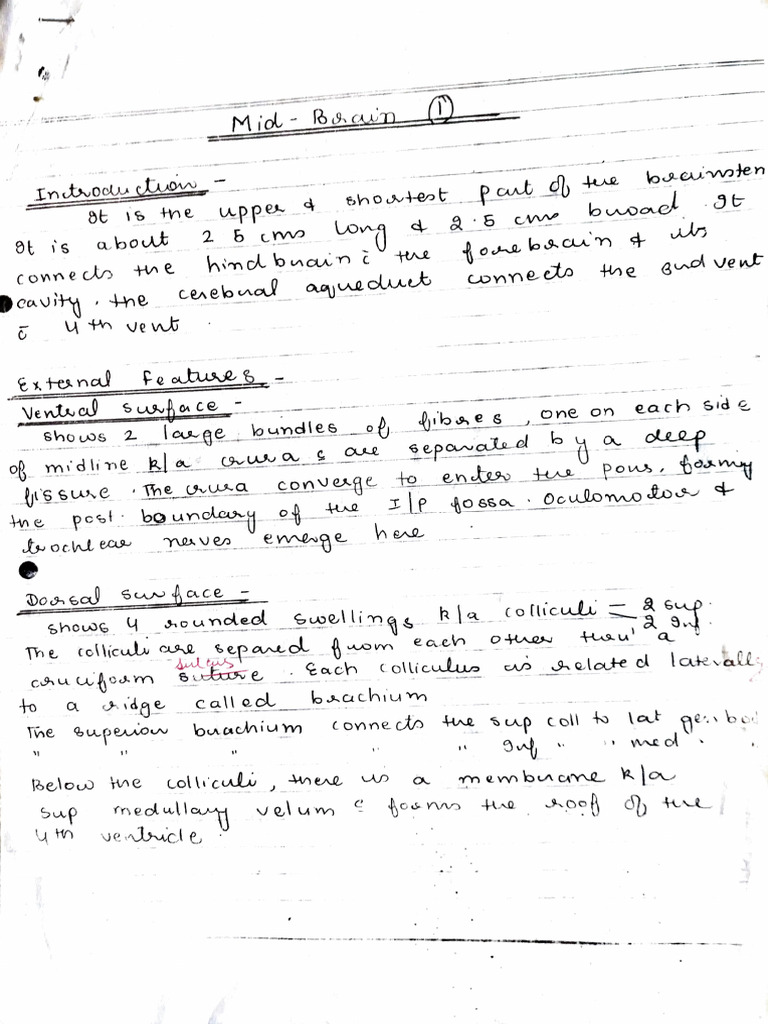 Mid-Brain ①
Introduction -
It is the upper & shortest part of the brainstem
It is about 2 5 cms long & 2.5 cms broad It
connects the hindbrain c̄ the forebrain & its
cavity. the cerebral aqueduct connects the 3rd vent
c̄ 4th vent.
External Features -
Ventral surface -
shows 2 large bundles of fibres, one on each side
of midline k/a crura & are separated by a deep
fissure. The crura converge to enter the pons, forming
the post. boundary of the I/P fossa. Oculomotor &
trochlear nerves emerge here
Dorsal surface -
shows 4 rounded swellings k/a colliculi = 2 sup.
2 Inf.
The colliculi are separed from each other thru' a
sulcus
cruciform suture. Each colliculus is related laterally
to a ridge called brachium
The superior brachium connects the sup coll to lat gen. bo
" " " " " Inf " " med "
Below the colliculi, there is a membrane k/a
sup medullary velum c̄ forms the roof of the
4th ventricle.